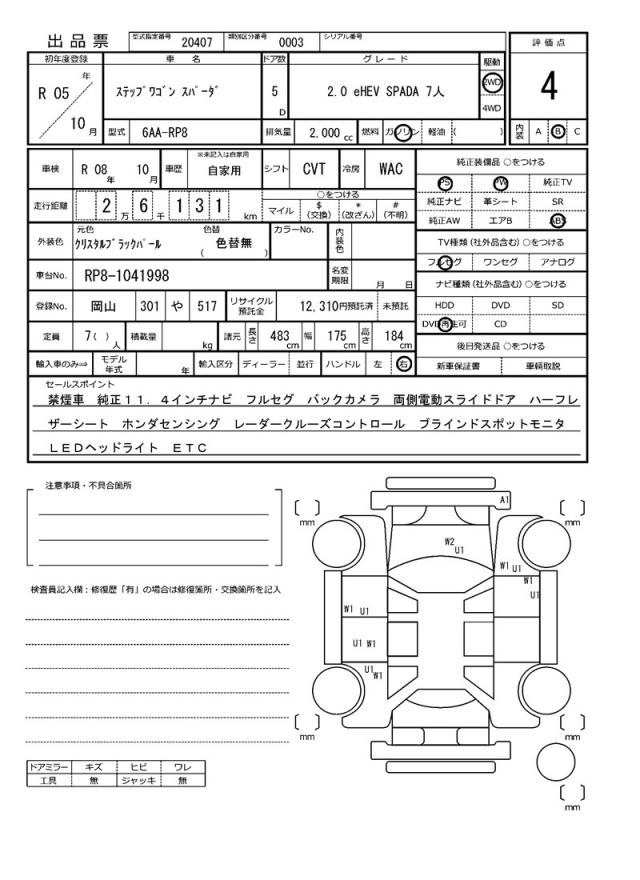 出品票 型式指定番号 20407 類別区分番号 0003 シリアル番号
評価点
4
内装 A B C
初年度登録 車名 ドア数 グレード 駆動
R 05 年 10 月 ｽﾃｯﾌﾟﾜｺﾞﾝ ｽﾊﾟｰﾀﾞ 5 D 2.0 eHEV SPADA 7人 2WD
4WD
型式 6AA-RP8 排気量 2,000 cc 燃料 ガソリン 軽油 ( )
車検 R 08 年 10 月 車歴 ※未記入は自家用 自家用 シフト CVT 冷房 WAC
走行距離 2 万 6 千 1 3 1 km
○をつける
マイル $ (交換) * (改ざん) # (不明)
外装色 元色 ｸﾘｽﾀﾙﾌﾞﾗｯｸﾊﾟｰﾙ 色替 ( 色替無 ) カラーNo. 内装色
車台No. RP8-1041998 名変期限 月 日
登録No. 岡山 301 や 517 リサイクル預託金 12,310円預託済 未預託
定員 7( ) 人 積載量 kg 諸元 長さ 483 cm 幅 175 cm 高さ 184 cm
輸入車のみ⇒ モデル年式 年 輸入区分 ディーラー 並行 ハンドル 左 右
純正装備品 ○をつける
PS PW 純正TV
純正ナビ 革シート SR
純正AW エアB ABS
TV種類 (社外品含む) ○をつける
フルセグ ワンセグ アナログ
ナビ種類 (社外品含む) ○をつける
HDD DVD SD
DVD再生可 CD
後日発送品 ○をつける
新車保証書 車輌取説
セールスポイント
禁煙車 純正１１．４インチナビ フルセグ バックカメラ 両側電動スライドドア ハーフレ
ザーシート ホンダセンシング レーダークルーズコントロール ブラインドスポットモニタ
ＬＥＤヘッドライト ＥＴＣ
注意事項・不具合箇所
検査員記入欄：修復歴「有」の場合は修復箇所・交換箇所を記入
ドアミラー キズ ヒビ ワレ
工具 無 ジャッキ 無
A1
mm mm
W2
U1
W1 U1
W1
U1
W1 U1
U1 W1
U1
W1
mm mm
mm